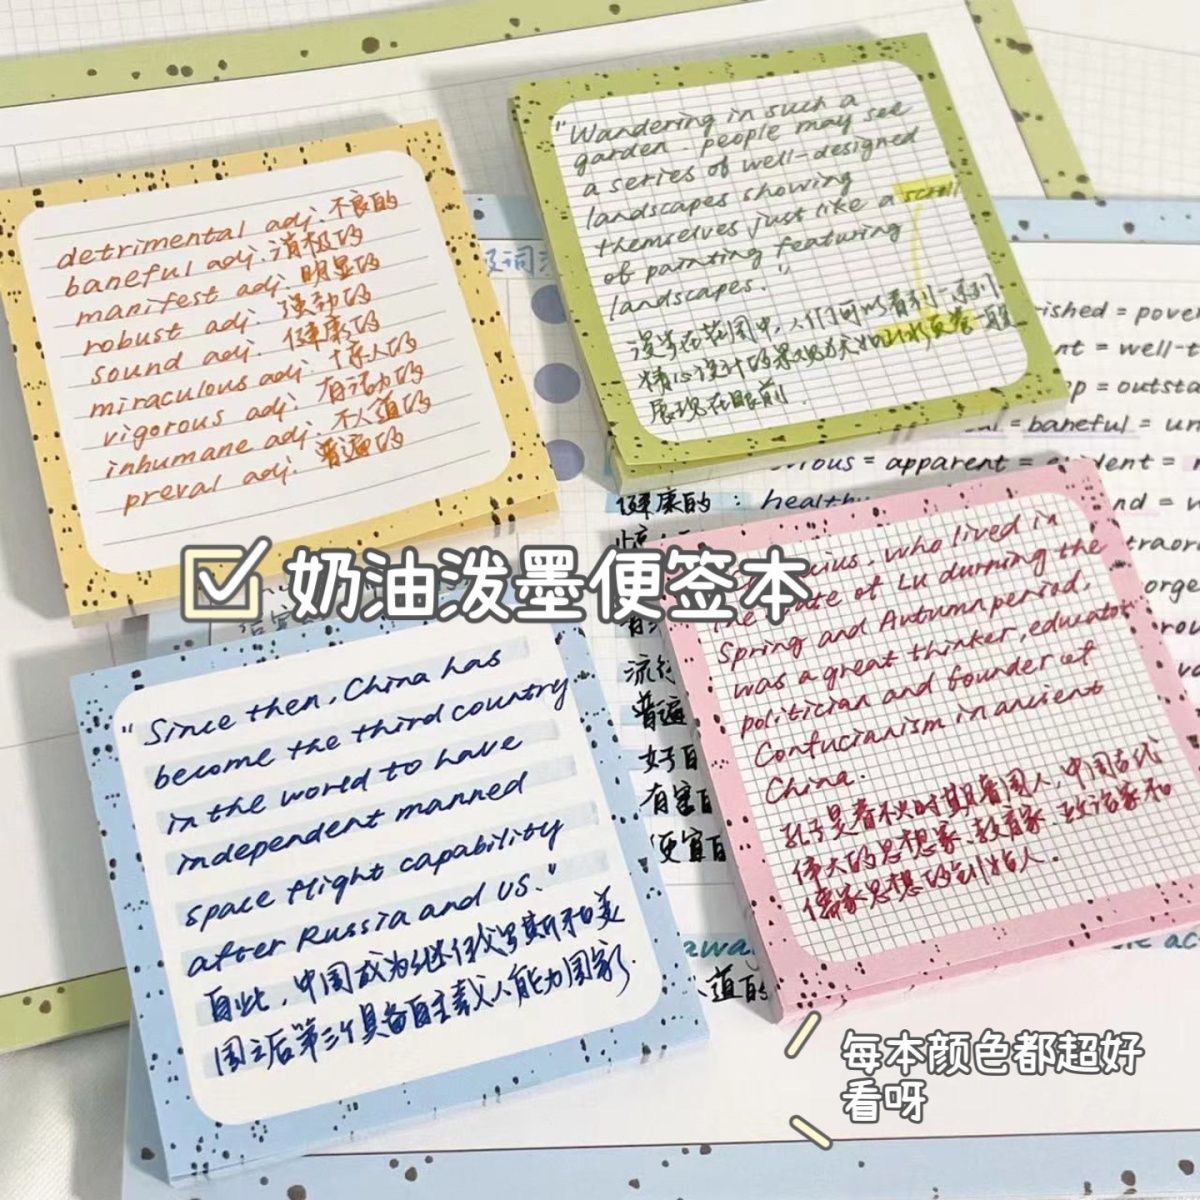 detrimental adj. 不良的
baneful adj. 消极的
manifest adj. 明显的
robust adj. 强劲的
sound adj. 健康的
miraculous adj. 惊人的
vigorous adj. 有活力的
inhumane adj. 不人道的
preval adj. 普遍的
"Wandering in such a
garden. people may see
a series of well-designed
landscapes showing
themselves just like a scroll
of painting featuring
landscapes."
漫步在花园中,人们可以看到一系列
精心设计的景观犹如山水画卷一般
展现在眼前.
奶油泼墨便签本
"Since then, China has
become the third country
in the world to have
independent manned
space flight capability
after Russia and US."
自此,中国成为继俄罗斯和美
国之后第三个具备自主载人能力国家.
who lived in
the state of Lu durning the
Spring and Autumn period,
was a great thinker, educator
politician and founder of
Confucianism in ancient
China.
孔子是春秋时期鲁国人,中国古代
伟大的思想家、教育家、政治家和
儒家思想的创始人.
= pover
= well-t
= outsta
= baneful = un
= apparent =
健康的 : healthy
普遍
有害
便宜
道的
每本颜色都超好
看呀